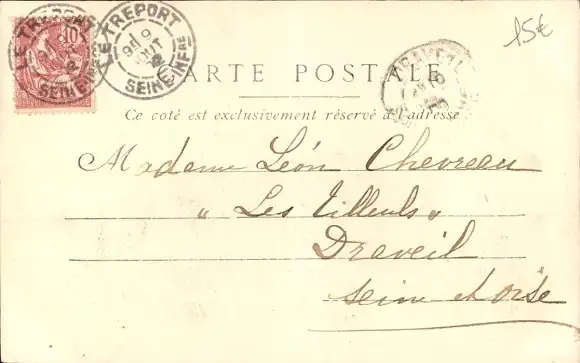 15€
10
LE TREPORT
SEINE INFRE
LE TREPORT
9
AOUT
SEINE INFRE
CARTE POSTALE
DRAVEIL
Ce coté est exclusivement réservé à l'adresse
Madame Léon Chevreau
"Les Tilleuls"
Draveil
Seine et Oise